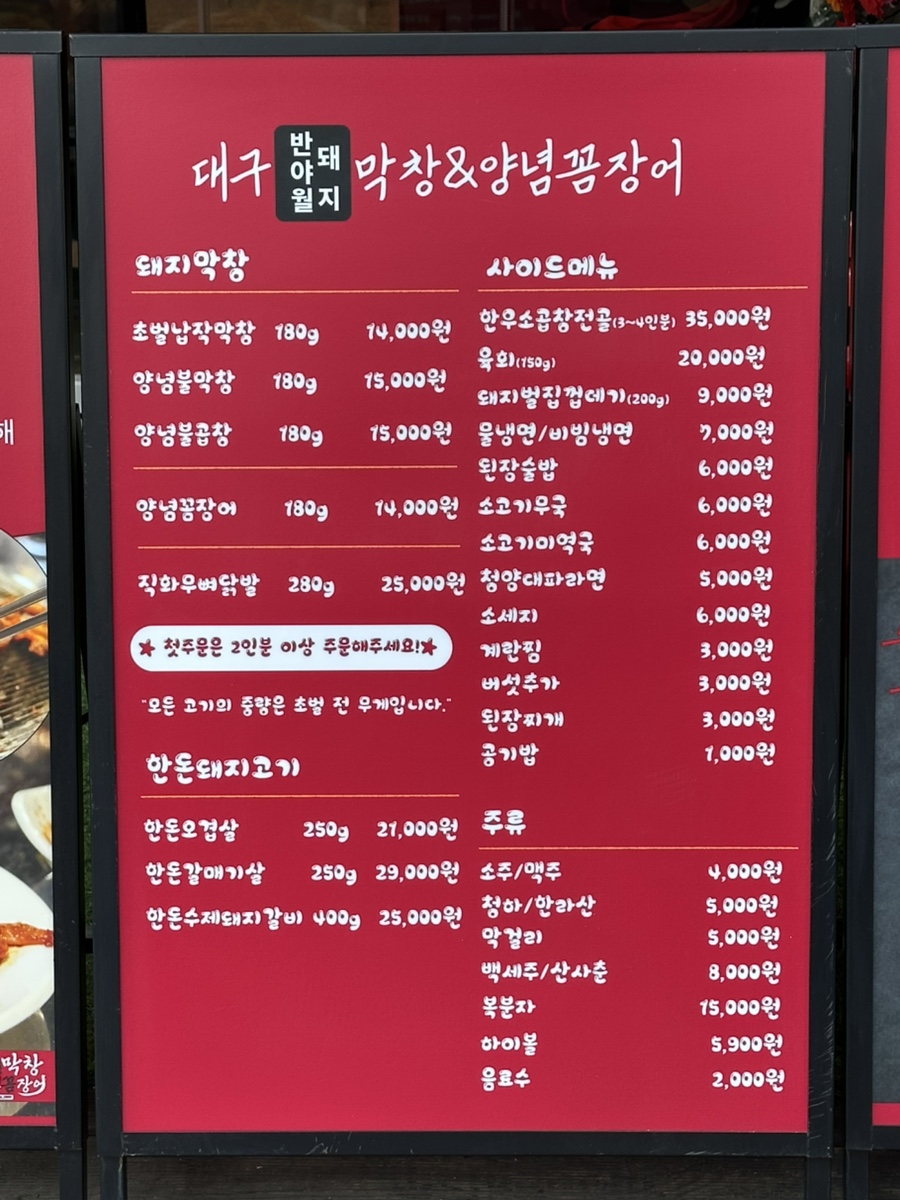 대구 반야월 돼지 막창&양념꼼장어
돼지막창
초벌납작막창 180g 14,000원
양념불막창 180g 15,000원
양념불곱창 180g 15,000원
양념꼼장어 180g 14,000원
직화무뼈닭발 280g 25,000원
★ 첫주문은 2인분 이상 주문해주세요!★
"모든 고기의 중량은 초벌 전 무게입니다."
한돈돼지고기
한돈오겹살 250g 21,000원
한돈갈매기살 250g 29,000원
한돈수제돼지갈비 400g 25,000원
사이드메뉴
한우소곱창전골(3~4인분) 35,000원
육회(150g) 20,000원
돼지벌집껍데기(200g) 9,000원
물냉면/비빔냉면 7,000원
된장술밥 6,000원
소고기무국 6,000원
소고기미역국 6,000원
청양대파라면 5,000원
소세지 6,000원
계란찜 3,000원
버섯추가 3,000원
된장찌개 3,000원
공기밥 1,000원
주류
소주/맥주 4,000원
청하/한라산 5,000원
막걸리 5,000원
백세주/산사춘 8,000원
복분자 15,000원
하이볼 5,900원
음료수 2,000원
해
막창
꼼장어